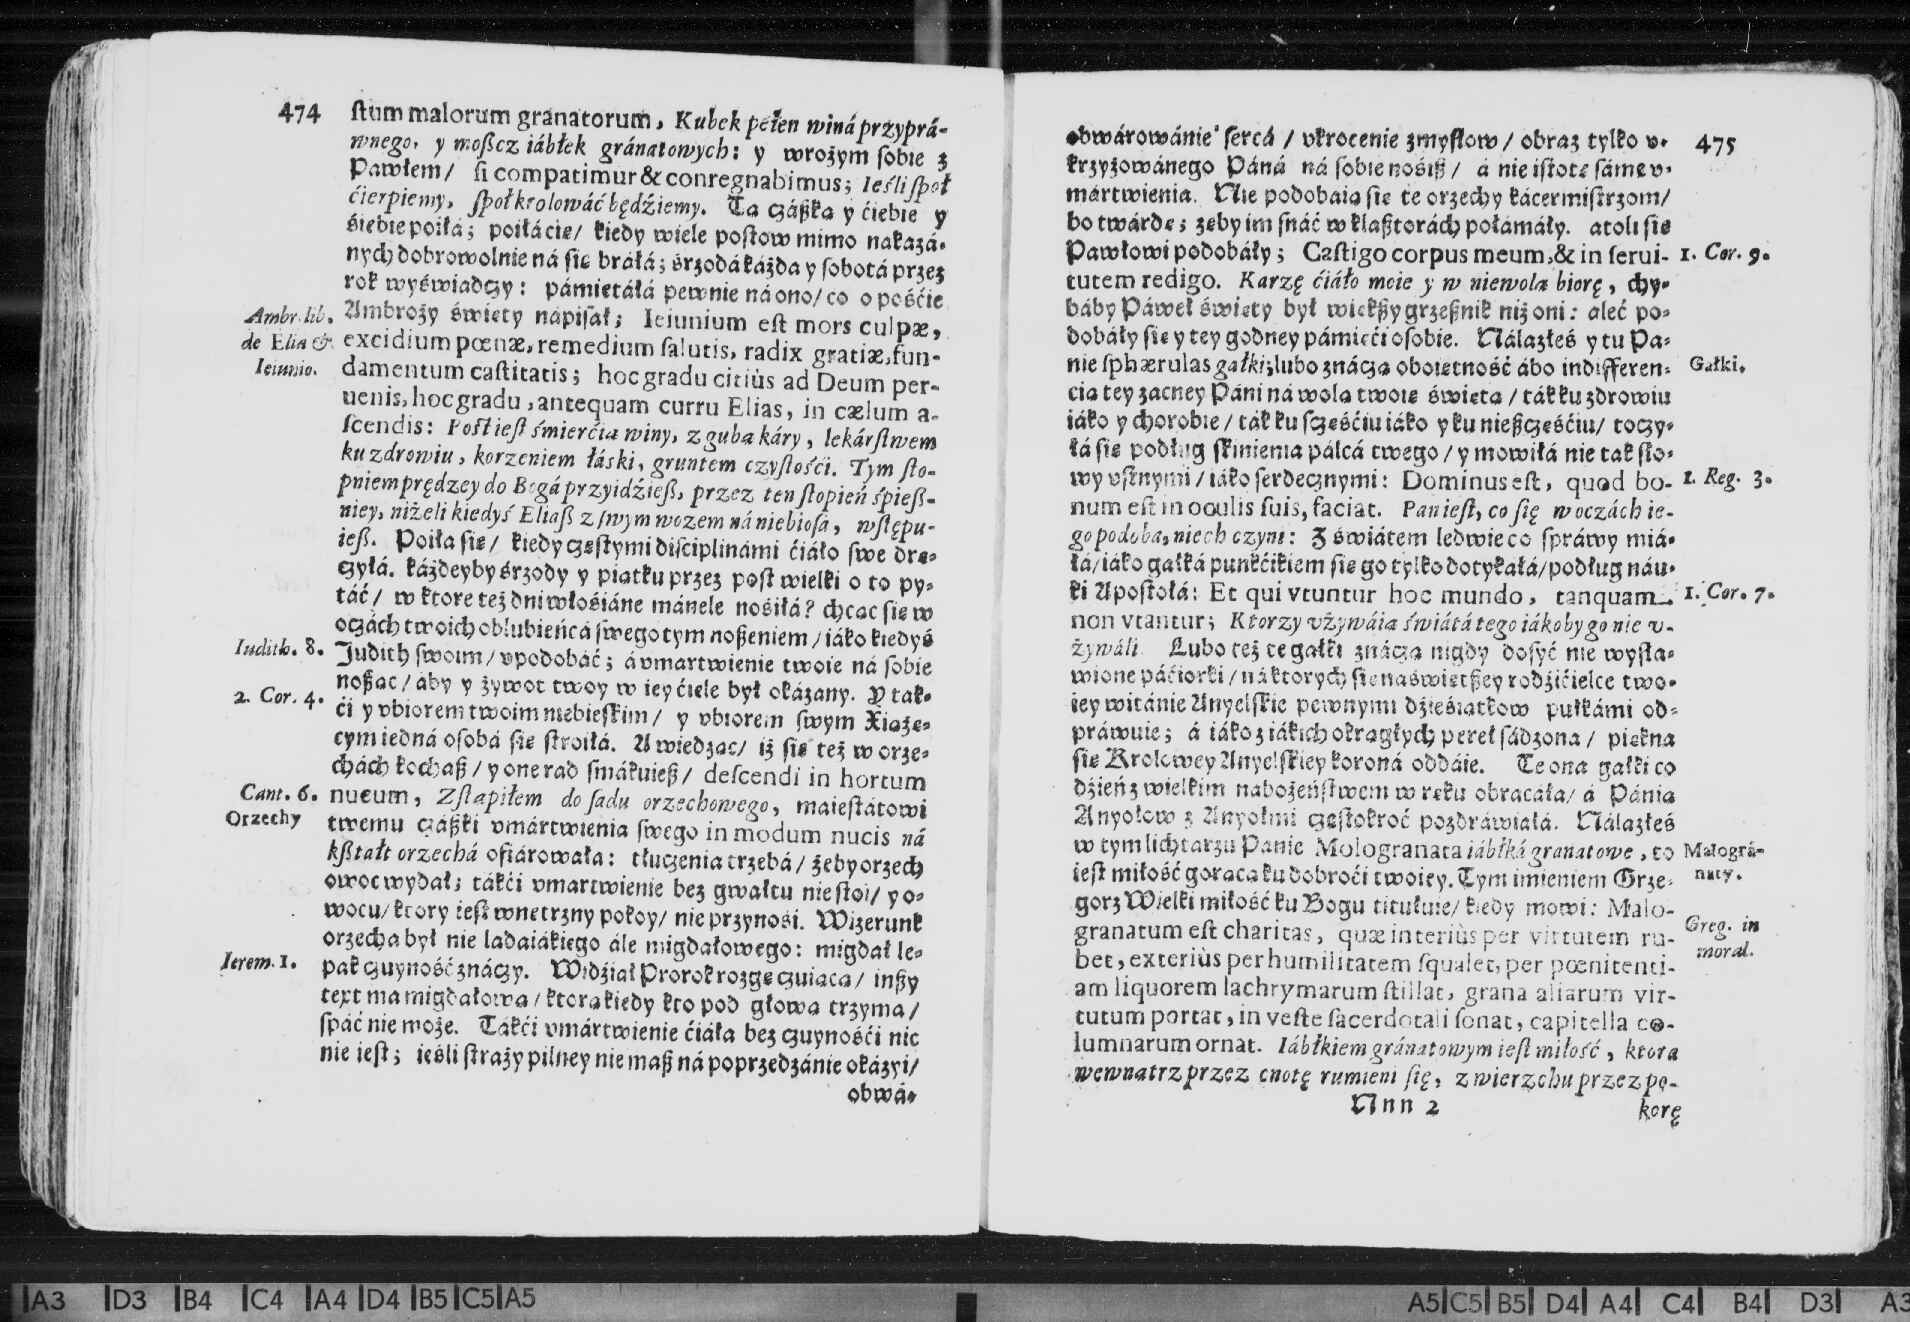 474
ſtum malorum granatorum, Kubek pełen winá przyprá-
wnego, y moßcz iábłek gránatowych: y wrożym ſobie z
Pawłem/ ſi compatimur & conregnabimus; Ieśli ſpoł
ćierpiemy, ſpołkrolowáć będźiemy. Ta czáßka y ćiebie y
śiebie poiłá; poiłá cie/ kiedy wiele poſtow mimo nakazá-
nych dobrowolnie ná ſie bráłá; śrzodá káżda y ſobotá przez
rok wyświadczy: pámietáłá pewnie ná ono/ co o pośćie
Ambroży świety nápiſał; Ieiunium eſt mors culpæ,
excidium pœnæ, remedium ſalutis, radix gratiæ, fun-
damentum caſtitatis; hoc gradu citiùs ad Deum per-
uenis, hoc gradu, antequam curru Elias, in cælum a-
ſcendis: Poſt ieſt śmierćia winy, zguba káry, lekárſtwem
ku zdrowiu, korzeniem łáski, gruntem czyſtośći. Tym ſto-
pniem prędzey do Bogá przyidźieß, przez ten ſtopień śpieß-
niey, niżeli kiedyś Eliaß z ſwym wozem ná niebioſa, wſtępu-
ieß. Poiła ſie/ kiedy czeſtymi diſciplinámi ćiáło ſwe dre-
czyłá. káżdeyby śrzody y piątku przez poſt wielki o to py-
táć/ w ktore też dni włośiáne mánele nośiłá? chcąc ſie w
oczách twoich oblubieńcá ſwego tym noßeniem/ iáko kiedyś
Judith ſwoim/ vpodobáć; á vmartwienie twoie ná ſobie
noßąc/ áby y żywot twoy w iey ćiele był okázany. Y tak-
ći y vbiorem twoim niebieſkim/ y vbiorem ſwym Xiąże-
cym iedná oſobá ſie ſtroiłá. A wiedząc/ iż ſie też w orze-
chách kochaß/ y one rad ſmákuieß/ deſcendi in hortum
nucum, Zſtąpiłem do ſadu orzechowego, maieſtatowi
twemu czáßki vmártwienia ſwego in modum nucis ná
kßtałt orzechá ofiárowała: tłuczenia trzebá/ żeby orzech
owoc wydał; tákći vmartwienie bez gwałtu nie ſtoi/ y o-
wocu/ ktory ieſt wnetrzny pokoy/ nie przynośi. Wizerunk
orzecha był nie ladaiákiego ále migdałowego: migdał le-
pak czuyność znáczy. Widźiał Prorok rozgę czuiącą/ inßy
text ma migdałową/ ktorą kiedy kto pod głową trzyma/
ſpáć nie może. Tákći vmártwienie ćiáła bez czuynośći nic
nie ieſt; ieśli ſtraży pilney nie maß ná poprzedzánie okázyi/
obwá-
Ambr. lib.
de Elia &
Ieiunio.
Iudith. 8.
2. Cor. 4.
Cant. 6.
Orzechy
Ierem. 1.
475
obwárowánie ſercá/ vkrocenie zmyſłow/ obraz tylko v-
krzyżowánego Páná ná ſobie nośiß/ á nie iſtotę ſáme v-
mártwienia. Nie podobáią ſie te orzechy kácermiſtrzom/
bo twárde; żeby im ſnáć w klaßtorách połamáły. atoli ſie
Páwłowi podobáły; Caſtigo corpus meum, & in ſerui-
tutem redigo. Karzę ćiáło moie y w niewolą biorę, chy-
báby Páweł święty był wiekßy grzeßnik niż oni: áleć po-
dobáły ſie y tey godney pámięći oſobie. Nálazłeś y tu Pa-
nie ſphærulas gałki; lubo znáczą oboiętność ábo indifferen-
cią tey zacney Páni ná wolą twoię świętą/ ták ku zdrowiu
iáko y chorobie/ ták ku ſczęśćiu iáko y ku nießczęśćiu/ toczy-
łá ſie podług ſkinienia pálcá twego/ y mowiłá nie tak ſło-
wy vſtnymi/ iáko ſerdecznymi: Dominus eſt, quod bo-
num eſt in oculis ſuis, faciat. Pan ieſt, co ſię w oczách ie-
go podoba, niech czyni: Z świátem ledwie co ſpráwy miá-
łá/ iáko gałká punkćikiem ſie go tylko dotykałá/ podług náu-
ki Apoſtołá: Et qui vtuntur hoc mundo, tanquam
non vtantur; Ktorzy vżywáią świátá tego iákoby go nie v-
żywáli. Lubo też te gałki znáczą nigdy doſyć nie wyſła-
wione páćiorki/ ná ktorych ſie naświętßey rodźićielce two-
iey witánie Anyelſkie pewnymi dźieśiątkow pułkámi od-
práwuie; á iáko z iákich okrągłych pereł ſádzona/ piękna
ſie Krolowey Anyelſkiey koroná oddáie. Te oná gałki co
dźień z wielkim nabożeńſtwem w ręku obracała/ á Pánią
Anyołow z Anyołmi częſtokroć pozdráwiałá. Nálazłeś
w tym lichtarzu Pánie Mologranata iábłká granatowe, to
ieſt miłość gorącą ku dobroći twoiey. Tym imieniem Grze-
gorz Wielki miłość ku Bogu tituł́uie/ kiedy mowi: Malo-
granatum eſt charitas, quæ interiùs per virtutem ru-
bet, exteriùs per humilitatem ſqualet, per pœnitenti-
am liquorem lachrymarum ſtillat, grana aliarum vir-
tutum portat, in veſte ſacerdotali ſonat, capitella co-
lumnarum ornat. Iábłkiem gránatowym ieſt miłość, ktora
wewnątrz przez cnotę rumieni ſię, zwierzchu przez po-
Nnn 2
korę
1. Cor. 9.
Gałki.
1. Reg. 3.
1. Cor. 7.
Malográ-
naty.
Greg. in
moral.
A3 D3 B4 C4 A4 D4 B5 C5 A5
A5 C5 B5 D4 A4 C4 B4 D3 A3